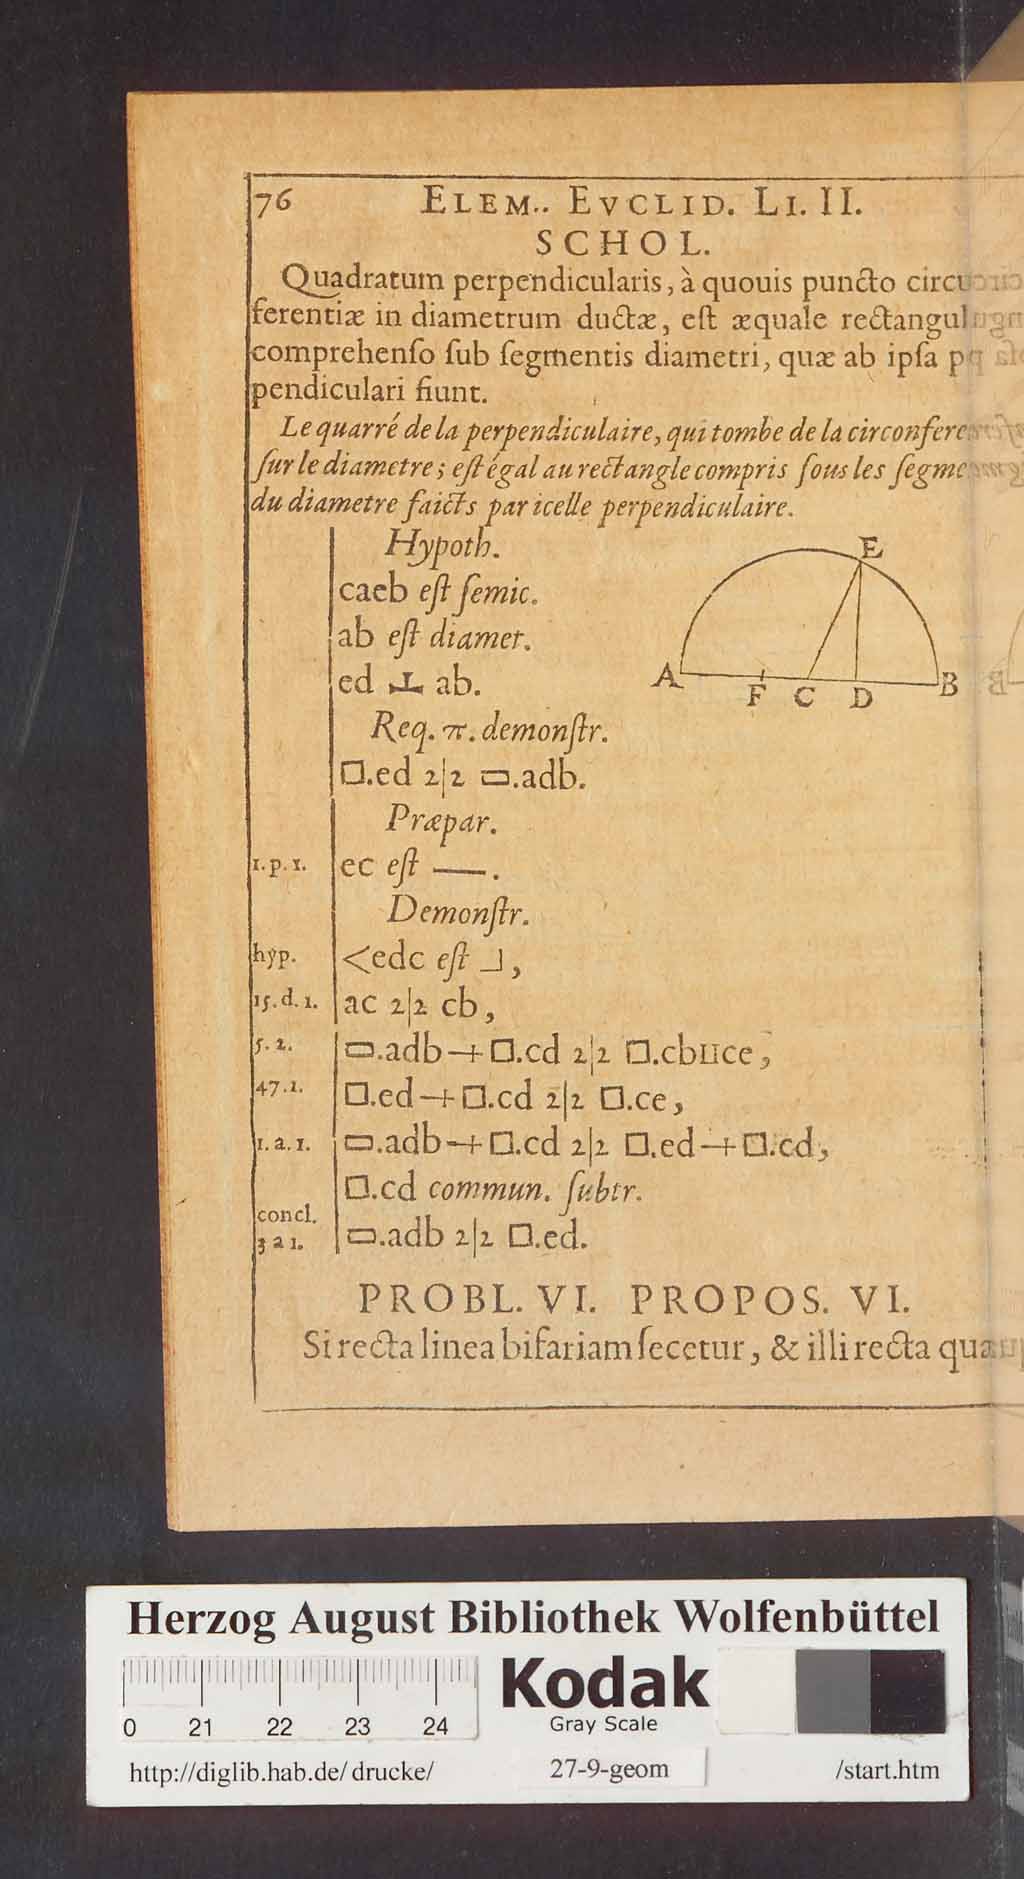 76 ELEM.. EVCLID. LI. II.
SCHOL.
Quadratum perpendicularis, à quouis puncto circu
ferentiæ in diametrum ductæ, est æquale rectangul
comprehenſo ſub ſegmentis diametri, quæ ab ipſa p
pendiculari fiunt.
Le quarré de la perpendiculaire, qui tombe de la circonfere
ſur le diametre; eſt égal au rectangle compris ſous les ſegme
du diametre faicts par icelle perpendiculaire.
Hypoth.
caeb eſt ſemic.
ab eſt diamet.
ed ⊥ ab.
E
A F C D B
Req. π. demonſtr.
□.ed 2|2 ▭.adb.
Præpar.
1.p.1. ec eſt —.
Demonſtr.
hyp. <edc eſt ⅃,
15.d.1. ac 2|2 cb,
5.2. ▭.adb+□.cd 2|2 □.cbⅡce,
47.1. □.ed+□.cd 2|2 □.ce,
1.a.1. ▭.adb+□.cd 2|2 □.ed+□.cd,
□.cd commun. ſubtr.
concl.
3 a 1. ▭.adb 2|2 □.ed.
PROBL. VI. PROPOS. VI.
Si recta linea bifariam ſecetur, & illi recta quæ
Herzog August Bibliothek Wolfenbüttel
0 21 22 23 24
Kodak
Gray Scale
http://diglib.hab.de/drucke/ 27-9-geom /start.htm